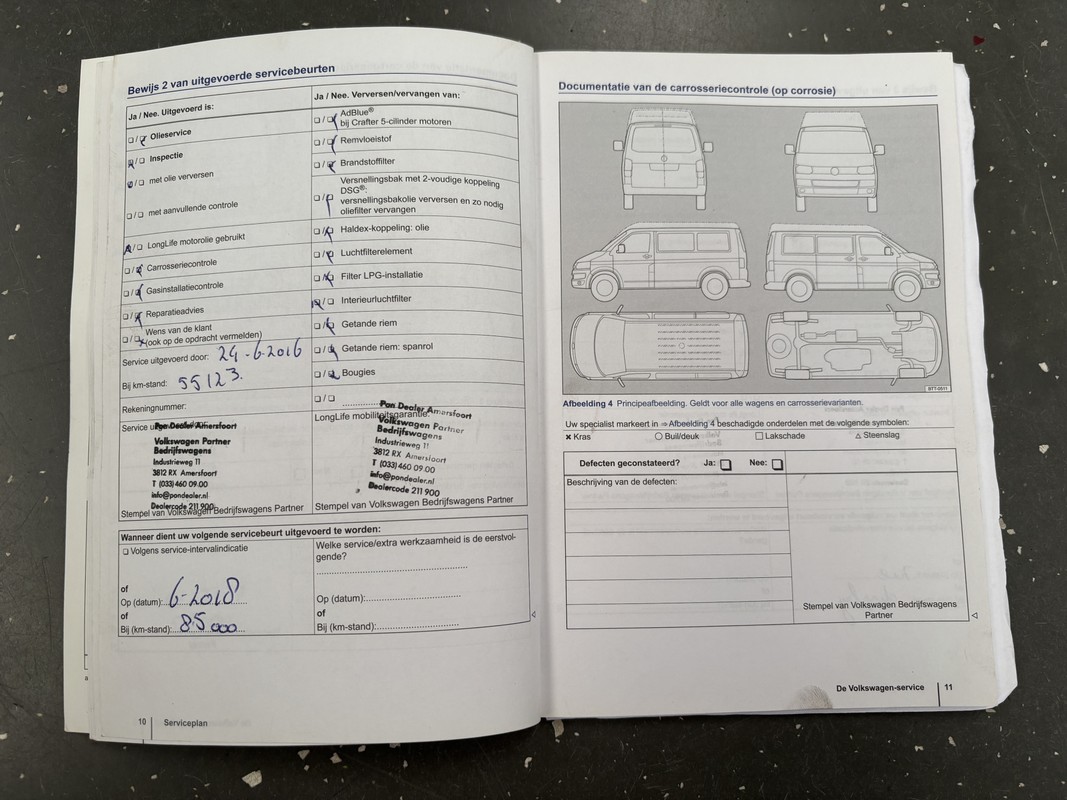 Bewijs 2 van uitgevoerde servicebeurten
Ja / Nee. Uitgevoerd is:
❏ / ❏ Olieservice
❏ / ❏ Inspectie
❏ / ❏ met olie verversen
❏ / ❏ met aanvullende controle
❏ / ❏ LongLife motorolie gebruikt
❏ / ❏ Carrosseriecontrole
❏ / ❏ Gasinstallatiecontrole
❏ / ❏ Reparatieadvies
❏ / ❏ Wens van de klant
(ook op de opdracht vermelden)
Service uitgevoerd door: 24-6-2016
Bij km-stand: 55123.
Rekeningnummer:
Pon Dealer Amersfoort
Volkswagen Partner
Bedrijfswagens
Industrieweg 11
3812 RX Amersfoort
T (033) 460 09.00
info@pondealer.nl
Dealercode 211 900
Stempel van Volkswagen Bedrijfswagens Partner
Ja / Nee. Verversen/vervangen van:
❏ / ❏ AdBlue®
bij Crafter 5-cilinder motoren
❏ / ❏ Remvloeistof
❏ / ❏ Brandstoffilter
❏ / ❏ Versnellingsbak met 2-voudige koppeling
DSG®:
versnellingsbakolie verversen en zo nodig
oliefilter vervangen
❏ / ❏ Haldex-koppeling: olie
❏ / ❏ Luchtfilterelement
❏ / ❏ Filter LPG-installatie
❏ / ❏ Interieurluchtfilter
❏ / ❏ Getande riem
❏ / ❏ Getande riem: spanrol
❏ / ❏ Bougies
❏ / ❏ ....................
LongLife mobiliteitsgarantie:
Pon Dealer Amersfoort
Volkswagen Partner
Bedrijfswagens
Industrieweg 11
3812 RX Amersfoort
T (033) 460 09.00
info@pondealer.nl
Dealercode 211 900
Stempel van Volkswagen Bedrijfswagens Partner
Wanneer dient uw volgende servicebeurt uitgevoerd te worden:
❏ Volgens service-intervalindicatie
of
Op (datum): 6-2018
of
Bij (km-stand): 85000
Welke service/extra werkzaamheid is de eerstvol-
gende?
Op (datum):
of
Bij (km-stand):
10 Serviceplan
Documentatie van de carrosseriecontrole (op corrosie)
BTT-0511
Afbeelding 4 Principeafbeelding. Geldt voor alle wagens en carrosserievarianten.
Uw specialist markeert in ⇒ Afbeelding 4 beschadigde onderdelen met de volgende symbolen:
✖ Kras ○ Buil/deuk □ Lakschade △ Steenslag
Defecten geconstateerd? Ja: ❏ Nee: ❏
Beschrijving van de defecten:
Stempel van Volkswagen Bedrijfswagens
Partner
De Volkswagen-service 11